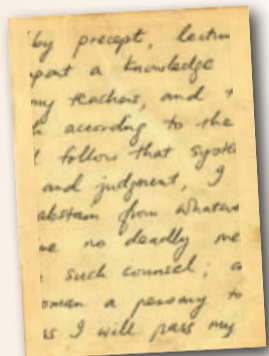 by precept, lectur
mpart a knowledge
my teachers, and t
according to the
I follow that syste
and judgment, I
abstain from whateve
me no deadly me
such counsel; a
oman a pessary to
ss I will pass my